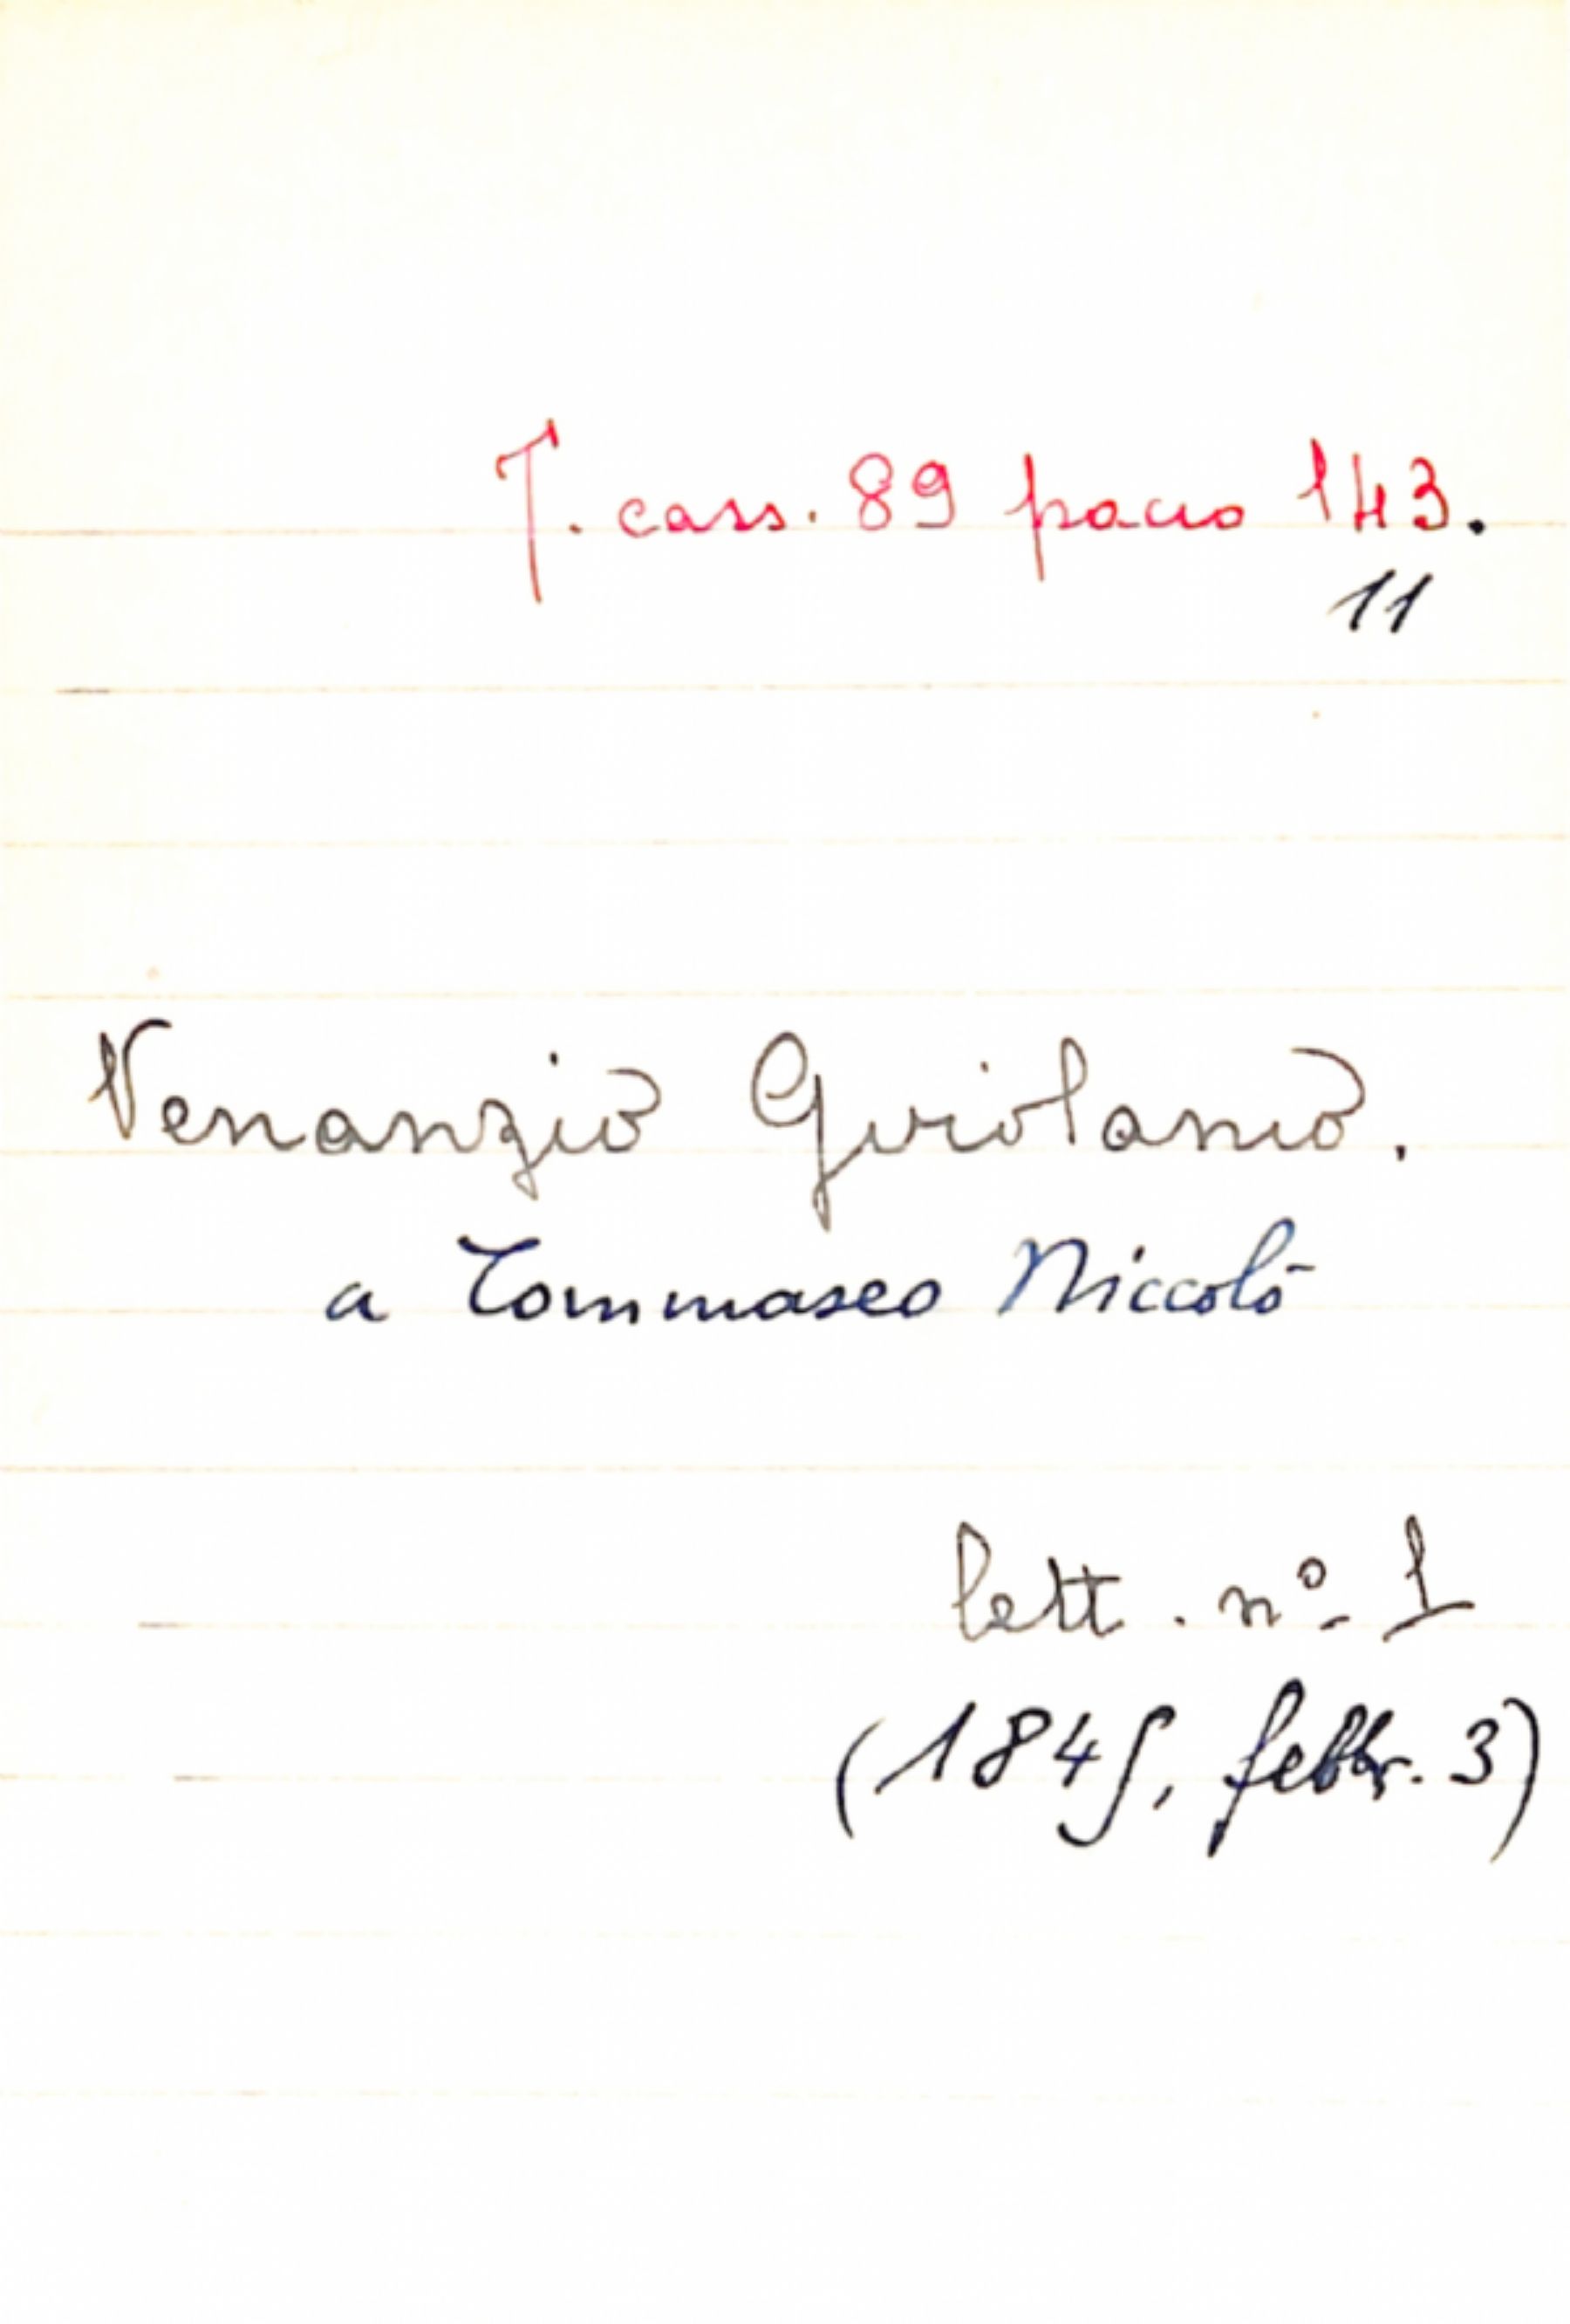 T. cass. 89 pacco 143.
11
Venanzio Girolamo.
a Tommaseo Niccolò
lett. nº 1
(1845, febbr. 3)